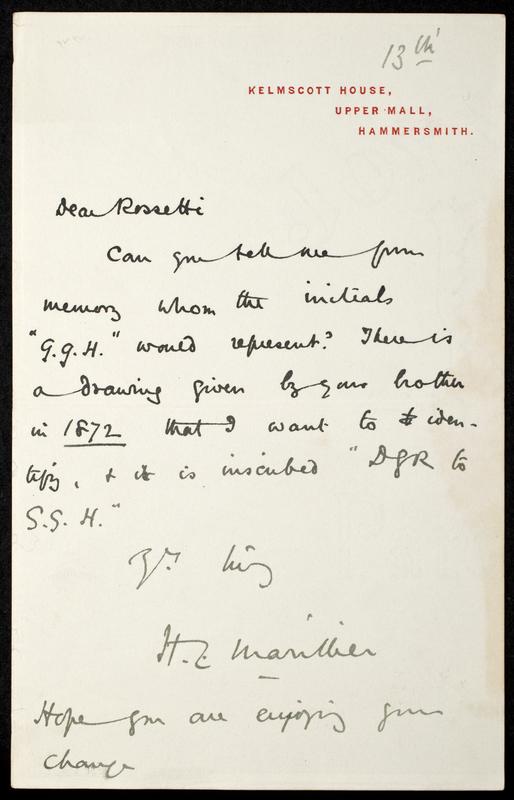 13th
KELMSCOTT HOUSE,
UPPER MALL,
HAMMERSMITH.
Dear Rossetti
Can you tell me from
memory whom the initials
"G.G.H." would represent? There is
a drawing given by your brother
in 1872 that I want to iden-
tify, & it is inscribed "DGR to
G.G.H."
Yrs
H.C. Marillier
Hope you are enjoying your
change